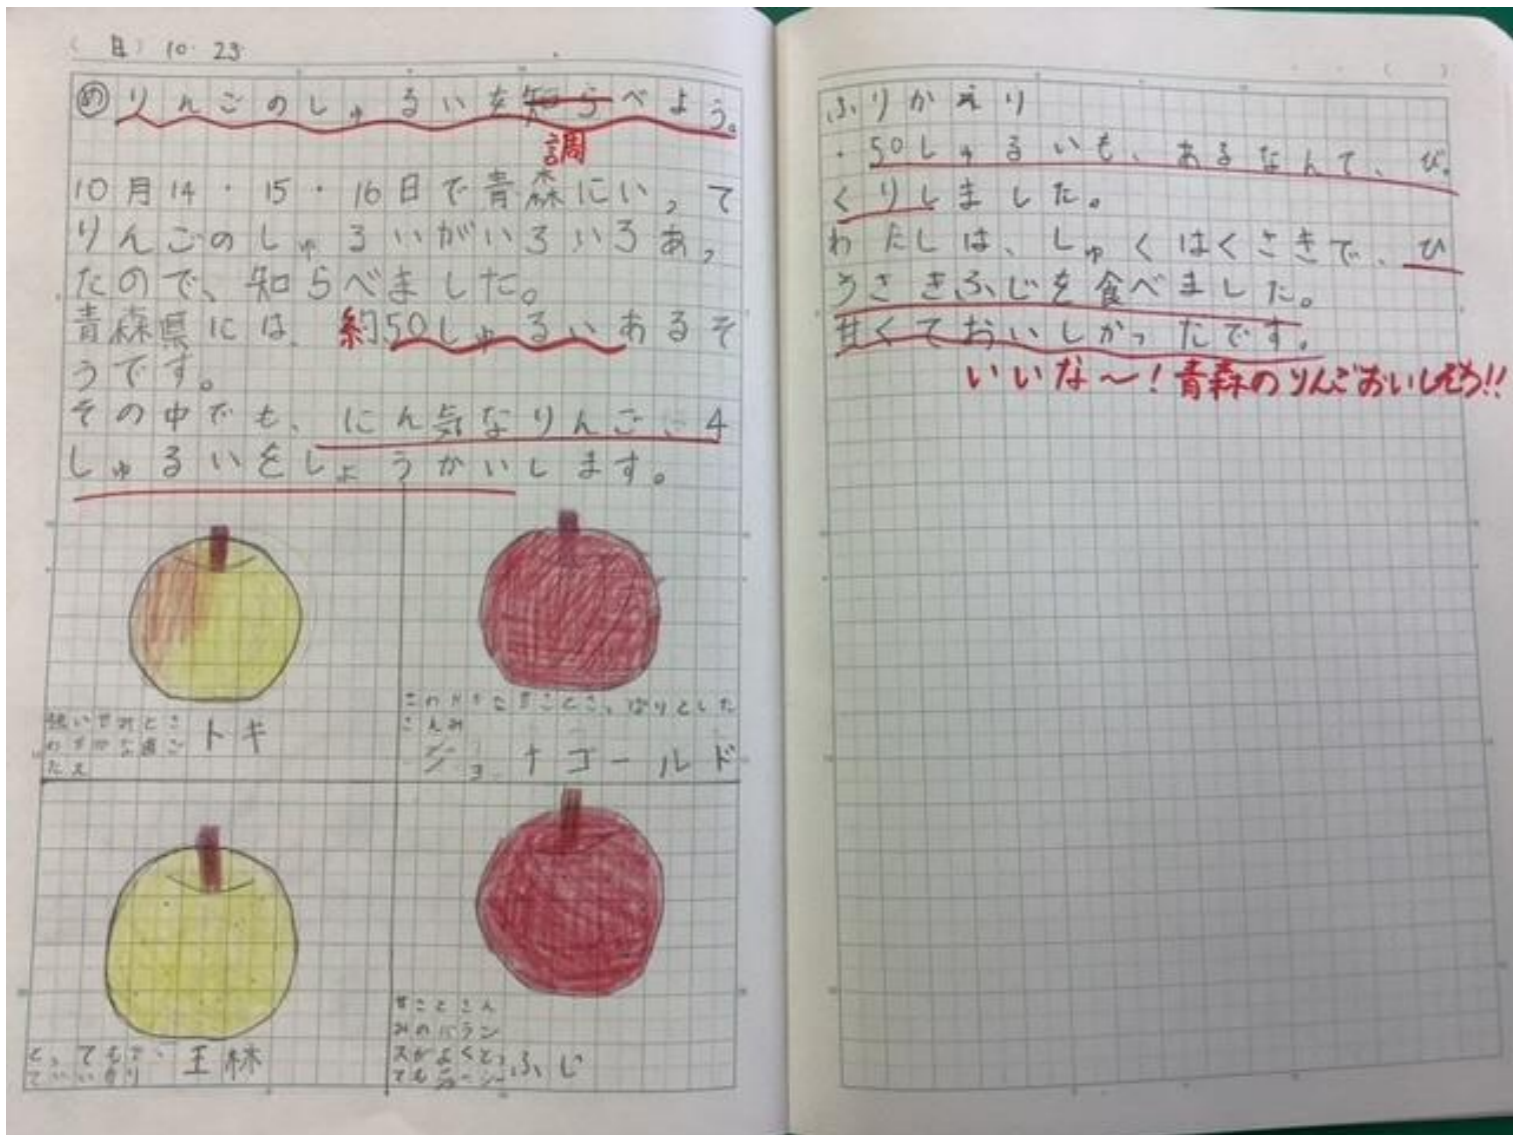 (日) 10.23
め りんごのしゅるいを知らべよう。
調
10月14・15・16日で青森にいって
りんごのしゅるいがいろいろあっ
たので、知らべました。
青森県には約50しゅるいあるそ
うです。
その中でも、にん気なりんご 4
しゅるいをしょうかいします。
トキ
さわやかな甘さとさっぱりとした
さんみ
ジョナゴールド
王林
甘さとさん
みのバラン
スがよくとっ
てもジューシー
ふじ
ふりかえり
・50しゅるいも、あるなんて、びっ
くりしました。
わたしは、しゅくはくさきで、ひ
ろさきふじを食べました。
甘くておいしかったです。
いいな〜!青森のりんごおいしそう!!